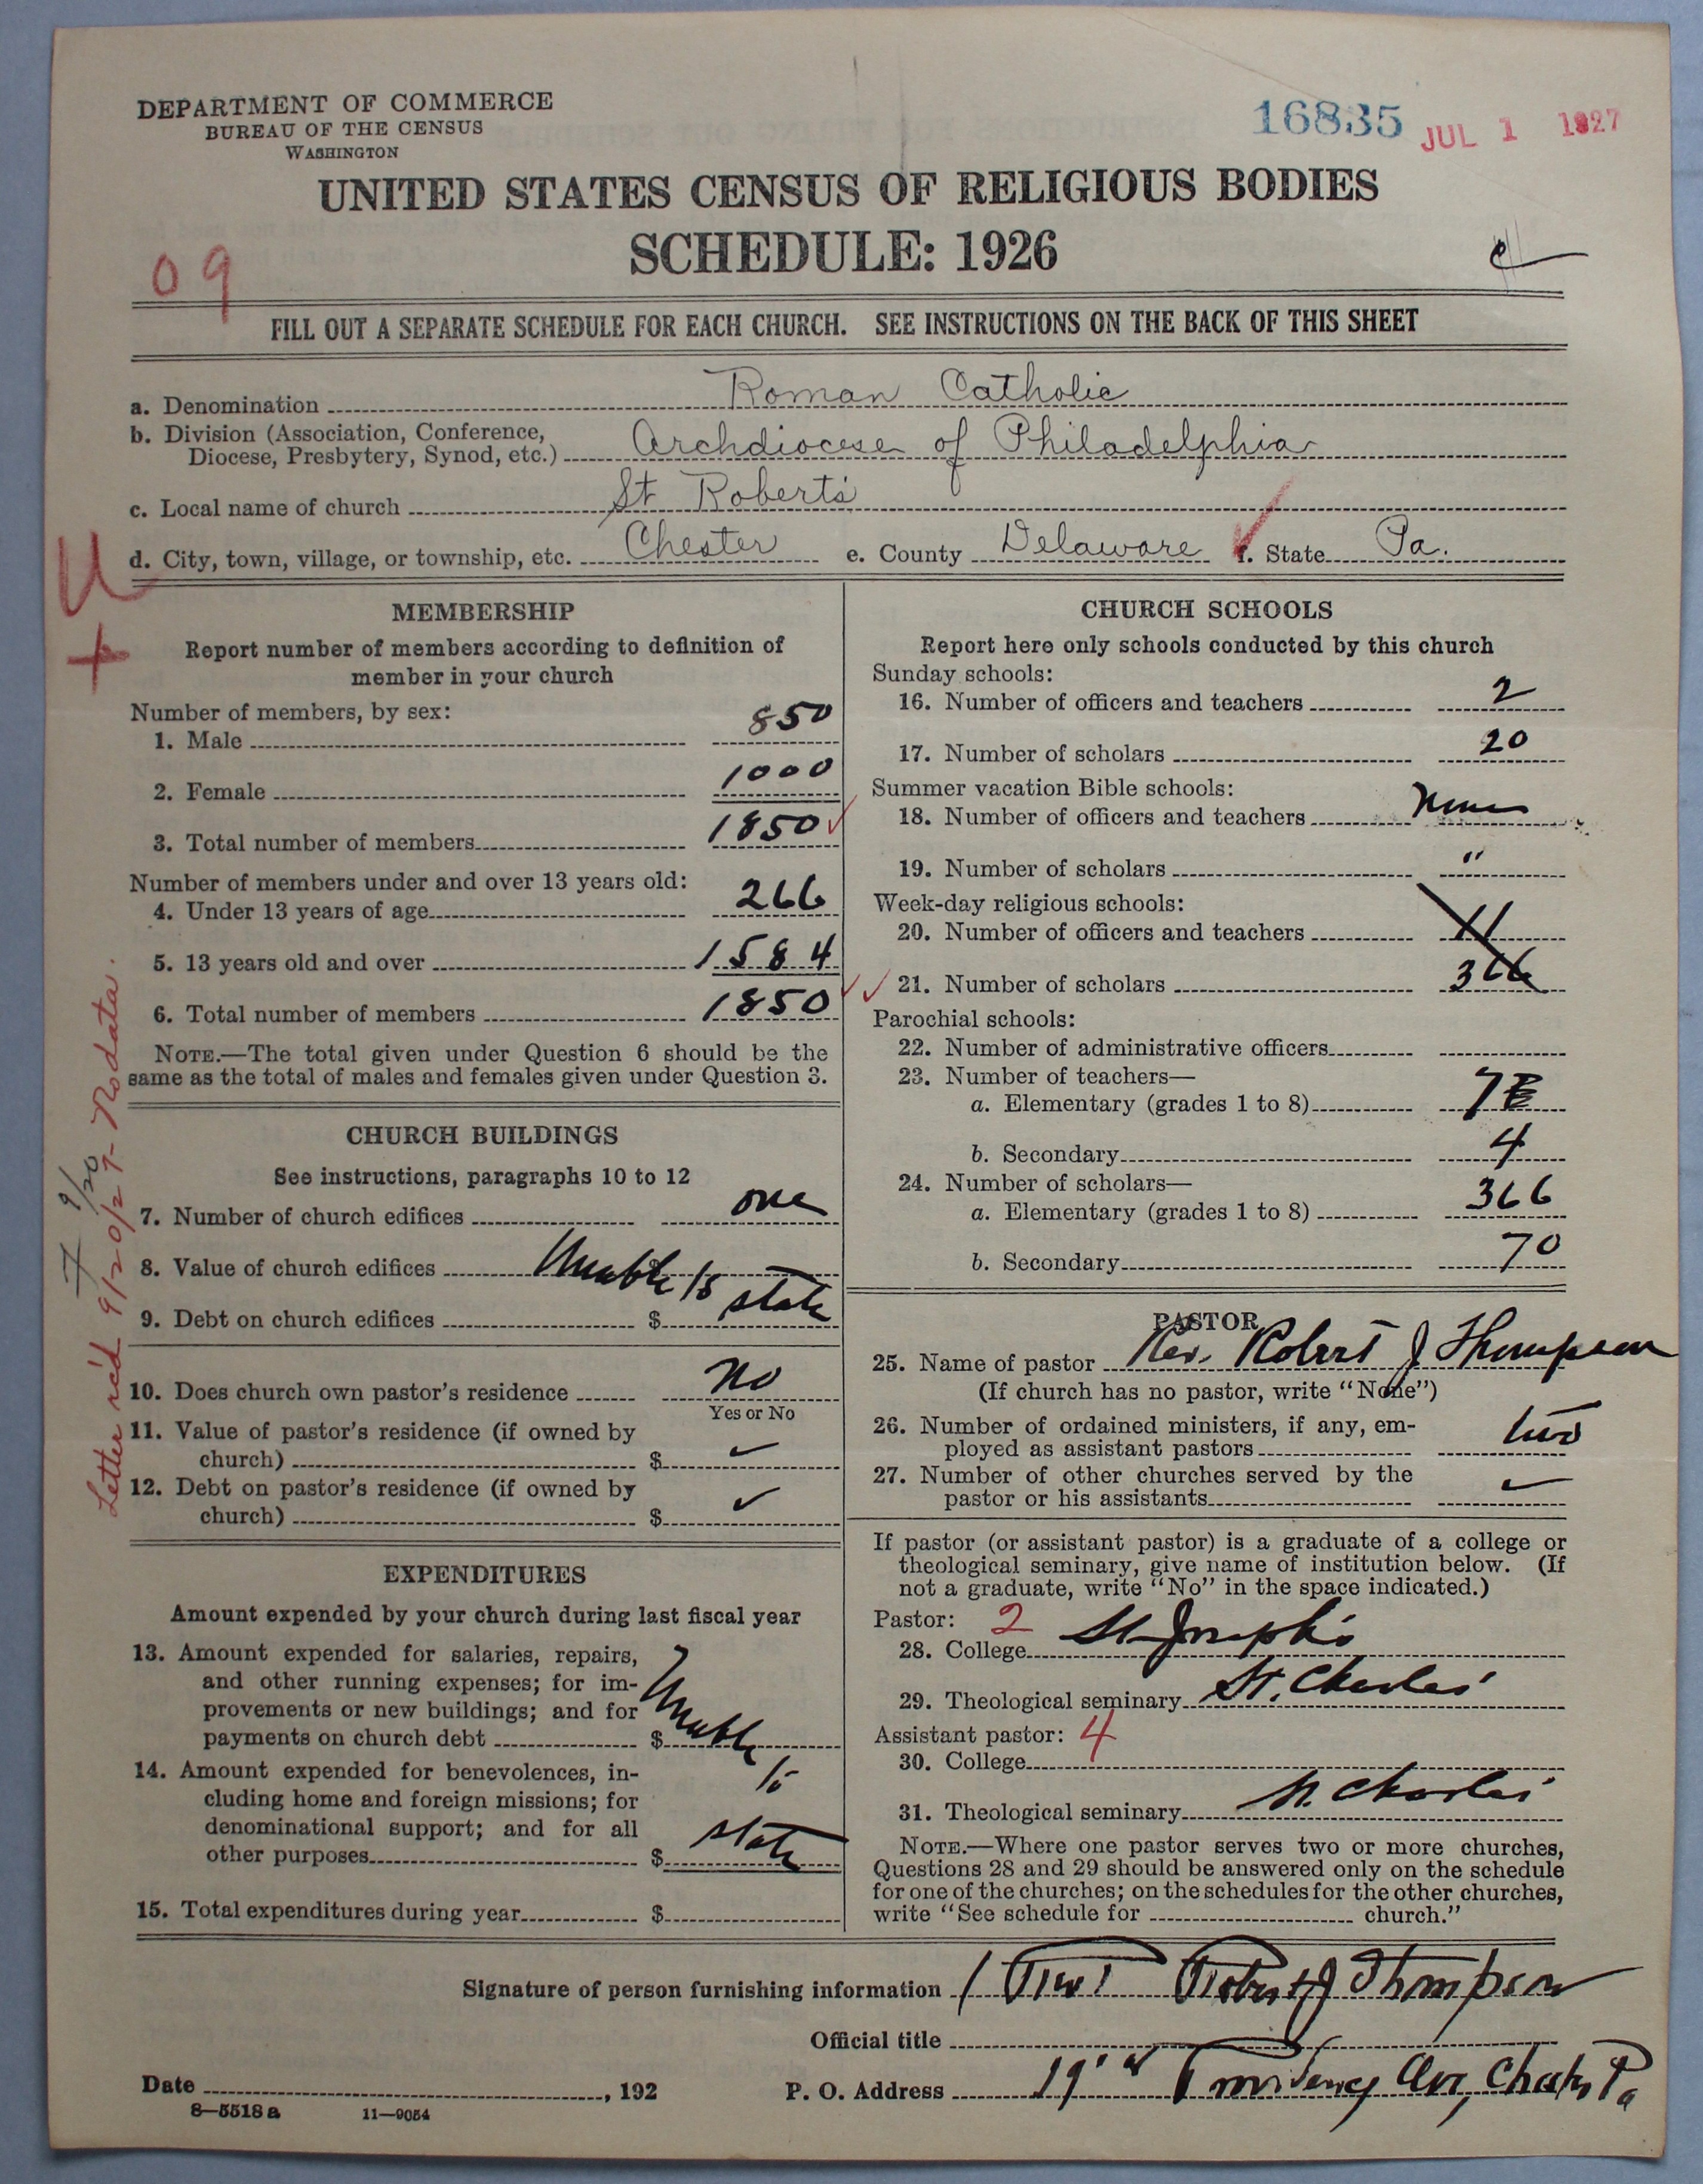 DEPARTMENT OF COMMERCE
BUREAU OF THE CENSUS
WASHINGTON
16835 JUL 1 1927
UNITED STATES CENSUS OF RELIGIOUS BODIES
SCHEDULE: 1926
09
FILL OUT A SEPARATE SCHEDULE FOR EACH CHURCH. SEE INSTRUCTIONS ON THE BACK OF THIS SHEET
a. Denomination Roman Catholic
b. Division (Association, Conference,
Diocese, Presbytery, Synod, etc.) Archdiocese of Philadelphia
c. Local name of church St Robert's
d. City, town, village, or township, etc. Chester e. County Delaware f. State Pa.
U
+
MEMBERSHIP
Report number of members according to definition of
member in your church
Number of members, by sex:
1. Male 850
2. Female 1000
3. Total number of members 1850
Number of members under and over 13 years old:
4. Under 13 years of age 266
5. 13 years old and over 1584
6. Total number of members 1850
NOTE.—The total given under Question 6 should be the
same as the total of males and females given under Question 3.
CHURCH BUILDINGS
See instructions, paragraphs 10 to 12
7. Number of church edifices one
8. Value of church edifices Unable to
9. Debt on church edifices $ state
10. Does church own pastor's residence No
Yes or No
11. Value of pastor's residence (if owned by
church) $ ✓
12. Debt on pastor's residence (if owned by
church) $ ✓
EXPENDITURES
Amount expended by your church during last fiscal year
13. Amount expended for salaries, repairs,
and other running expenses; for im-
provements or new buildings; and for
payments on church debt $ Unable
14. Amount expended for benevolences, in- to
cluding home and foreign missions; for
denominational support; and for all
other purposes $ state
15. Total expenditures during year $
Letter rec'd 9/20/27- No data.
9/20
CHURCH SCHOOLS
Report here only schools conducted by this church
Sunday schools:
16. Number of officers and teachers 2
17. Number of scholars 20
Summer vacation Bible schools:
18. Number of officers and teachers None
19. Number of scholars "
Week-day religious schools:
20. Number of officers and teachers 11
21. Number of scholars 366
Parochial schools:
22. Number of administrative officers
23. Number of teachers—
a. Elementary (grades 1 to 8) 7
b. Secondary 4
24. Number of scholars—
a. Elementary (grades 1 to 8) 366
b. Secondary 70
PASTOR
25. Name of pastor Rev. Robert J Thompson
(If church has no pastor, write "None")
26. Number of ordained ministers, if any, em-
ployed as assistant pastors two
27. Number of other churches served by the
pastor or his assistants ✓
If pastor (or assistant pastor) is a graduate of a college or
theological seminary, give name of institution below. (If
not a graduate, write "No" in the space indicated.)
Pastor: 2
28. College St Joseph's
29. Theological seminary St. Charles'
Assistant pastor: 4
30. College
31. Theological seminary St. Charles'
NOTE.—Where one pastor serves two or more churches,
Questions 28 and 29 should be answered only on the schedule
for one of the churches; on the schedules for the other churches,
write "See schedule for church."
Signature of person furnishing information Robert J Thompson
Official title
Date , 192 P. O. Address 19th & Providence Ave, Chester Pa
8—5518 a 11—9054